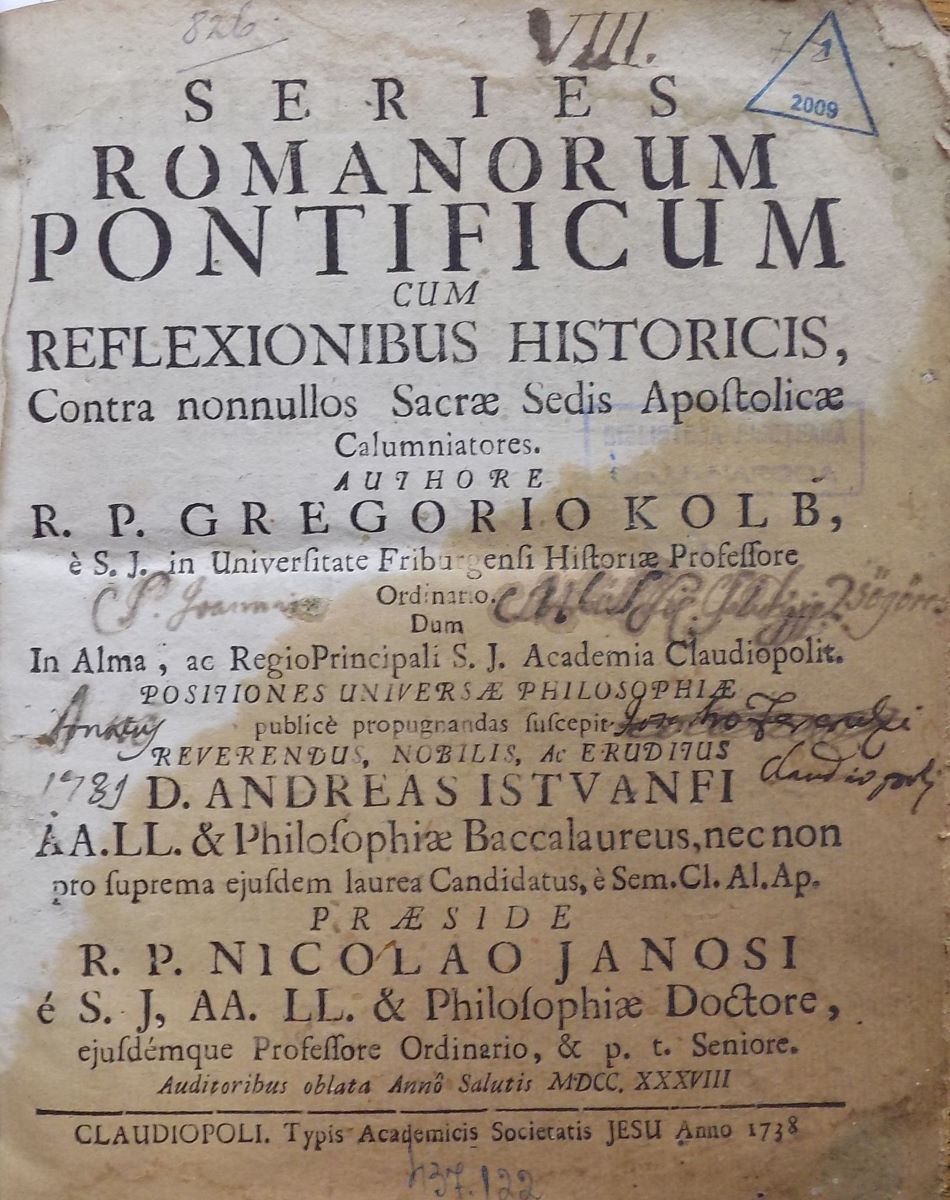 826.
VIII.
7
1
2009
SERIES
ROMANORUM
PONTIFICUM
CUM
REFLEXIONIBUS HISTORICIS,
Contra nonnullos Sacræ Sedis Apoſtolicæ
Calumniatores.
AUTHORE
R. P. GREGORIO KOLB,
è S. J. in Univerſitate Friburgenſi Hiſtoriæ Profeſſore
Ordinario.
Dum
In Alma, ac Regio Principali S. J. Academia Claudiopolit.
POSITIONES UNIVERSÆ PHILOSOPHIÆ
publicè propugnandas ſuſcepit
REVERENDUS, NOBILIS, Ac ERUDITUS
1781 D. ANDREAS ISTVANFI
AA.LL. & Philoſophiæ Baccalaureus, nec non
pro ſuprema ejuſdem laurea Candidatus, è Sem. Cl. Al. Ap.
PRÆSIDE
R. P. NICOLAO JANOSI
é S. J, AA. LL. & Philoſophiæ Doctore,
ejuſdémque Profeſſore Ordinario, & p. t. Seniore.
Auditoribus oblata Annô Salutis MDCC. XXXVIII
CLAUDIOPOLI. Typis Academicis Societatis JESU Anno 1738